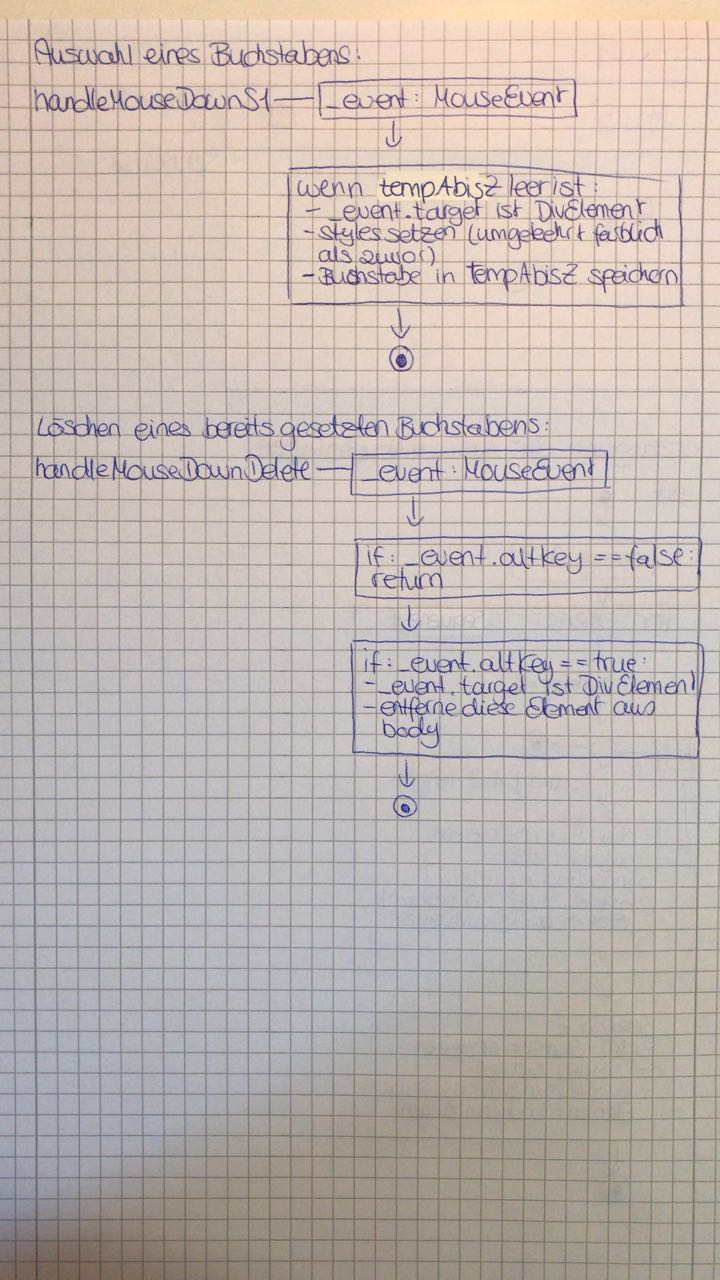 Auswahl eines Buchstabens:
handleMouseDownS1 _event: MouseEvent
wenn tempAbisZ leer ist:
- _event.target ist DivElement
- styles setzen (umgekehrt farblich
als zuvor)
- Buchstabe in tempAbisZ speichern
Löschen eines bereits gesetzten Buchstabens:
handleMouseDownDelete _event: MouseEvent
if: _event.altkey == false:
return
if: _event.altKey == true:
- _event.target ist DivElement
- entferne diese Element aus
body